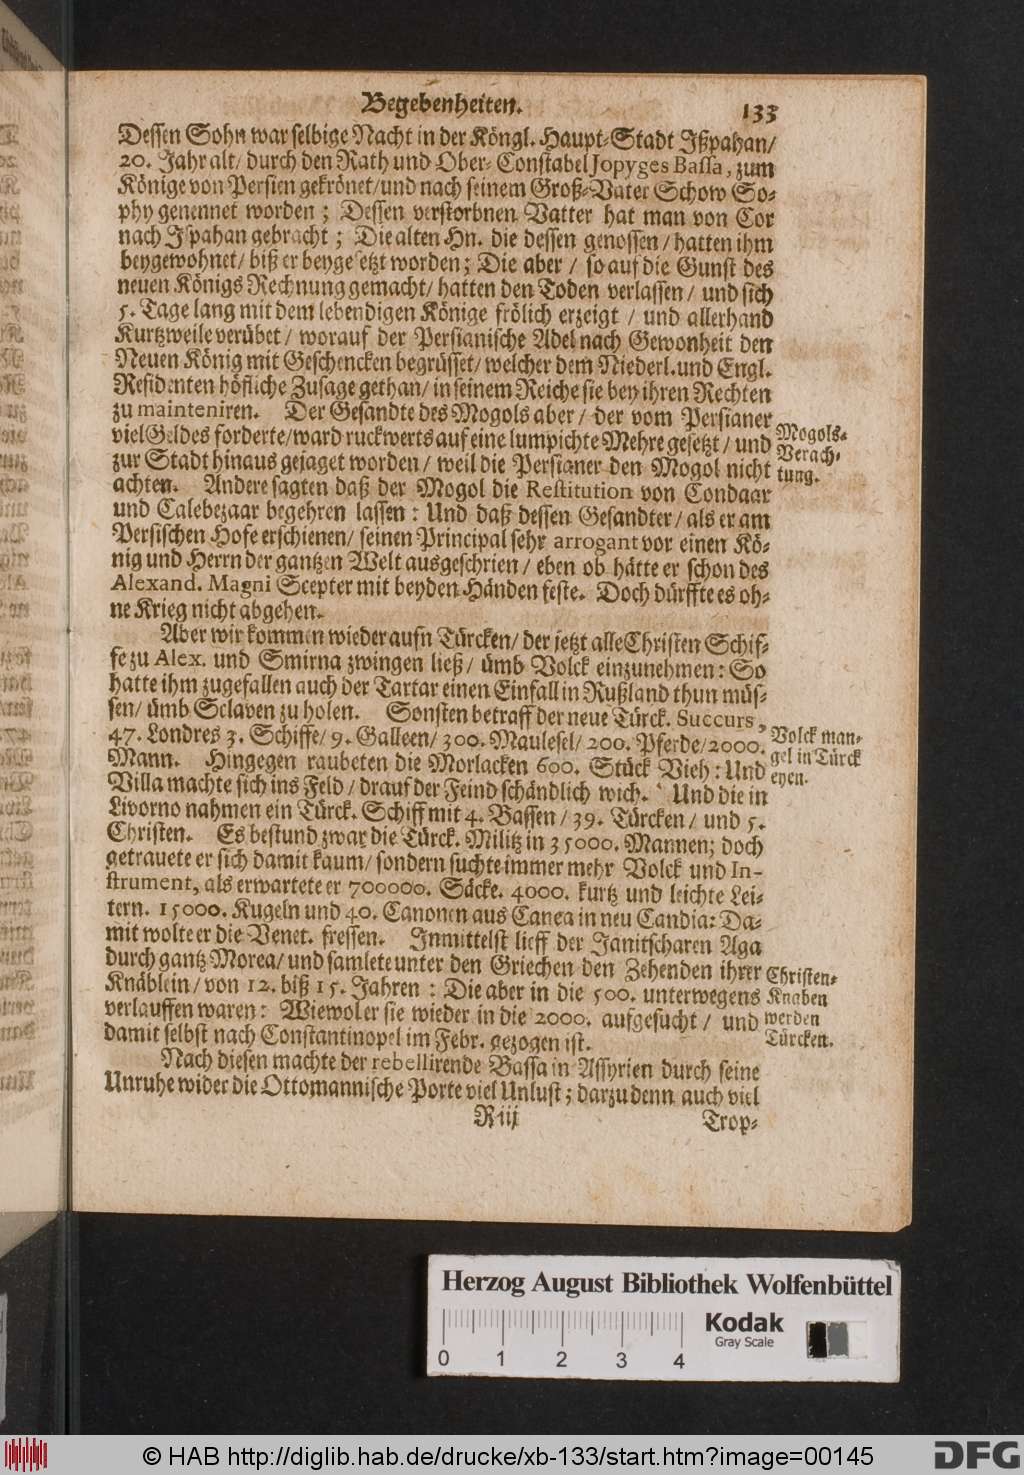 Begebenheiten. 133
Dessen Sohn war selbige Nacht in der Köngl. Haupt-Stadt Ißpahan/
20. Jahr alt/ durch den Rath und Ober-Constabel Jopyges Bassa, zum
Könige von Persien gekrönet/ und nach seinem Groß-Vater Schow So-
phy genennet worden; Dessen verstorbnen Vatter hat man von Cor
nach Ispahan gebracht; Die alten Hn. die dessen genossen/ hatten ihm
beygewohnet/ biß er beygesetzt worden; Die aber / so auf die Gunst des
neuen Königs Rechnung gemacht/ hatten den Toden verlassen/ und sich
5. Tage lang mit dem lebendigen Könige frölich erzeigt / und allerhand
Kurtzweile verübet/ worauf der Persianische Adel nach Gewonheit den
Neuen König mit Geschencken begrüsset/ welcher dem Niederl. und Engl.
Residenten höfliche Zusage gethan/ in seinem Reiche sie bey ihren Rechten
zu mainteniren. Der Gesandte des Mogols aber / der vom Persianer
viel Geldes forderte/ ward ruckwerts auf eine lumpichte Mehre gesetzt / und
zur Stadt hinaus gejaget worden / weil die Persianer den Mogol nicht
achten. Andere sagten daß der Mogol die Restitution von Condaar
und Calebezaar begehren lassen: Und daß dessen Gesandter/ als er am
Persischen Hofe erschienen/ seinen Principal sehr arrogant vor einen Kö-
nig und Herrn der gantzen Welt ausgeschrien / eben ob hätte er schon des
Alexand. Magni Scepter mit beyden Händen feste. Doch dürffte es oh-
ne Krieg nicht abgehen.
Mogols-
Verach-
tung.
Aber wir kommen wieder aufn Türcken/ der jetzt alle Christen Schif-
fe zu Alex. und Smirna zwingen ließ / ümb Volck einzunehmen: So
hatte ihm zugefallen auch der Tartar einen Einfall in Rußland thun müs-
sen/ ümb Sclaven zu holen. Sonsten betraff der neue Türck. Succurs,
47. Londres 3. Schiffe/ 9. Galleen/ 300. Maulesel/ 200. Pferde/ 2000.
Mann. Hingegen raubeten die Morlacken 600. Stück Vieh: Und
Villa machte sich ins Feld / drauf der Feind schändlich wich. Und die in
Livorno nahmen ein Türck. Schiff mit 4. Bassen/ 39. Türcken/ und 5.
Christen. Es bestund zwar die Türck. Militz in 35000. Mannen; doch
getrauete er sich damit kaum/ sondern suchte immer mehr Volck und In-
strument, als erwartete er 700000. Säcke. 4000. kurtz und leichte Lei-
tern. 15000. Kugeln und 40. Canonen aus Canea in neu Candia: Da-
mit wolte er die Venet. fressen. Inmittelst lieff der Janitscharen Aga
durch gantz Morea/ und samlete unter den Griechen den Zehenden ihrer
Knäblein/ von 12. biß 15. Jahren: Die aber in die 500. unterwegens
verlauffen waren: Wiewol er sie wieder in die 2000. aufgesucht / und
damit selbst nach Constantinopel im Febr. gezogen ist.
Volck man-
gel in Türck
eyen.
Christen-
Knaben
werden
Türcken.
Nach diesen machte der rebellirende Bassa in Assyrien durch seine
Unruhe wider die Ottomannische Porte viel Unlust; darzu denn auch viel
R iij Trop-
Herzog August Bibliothek Wolfenbüttel
Kodak
Gray Scale
0 1 2 3 4
© HAB http://diglib.hab.de/drucke/xb-133/start.htm?image=00145
DFG